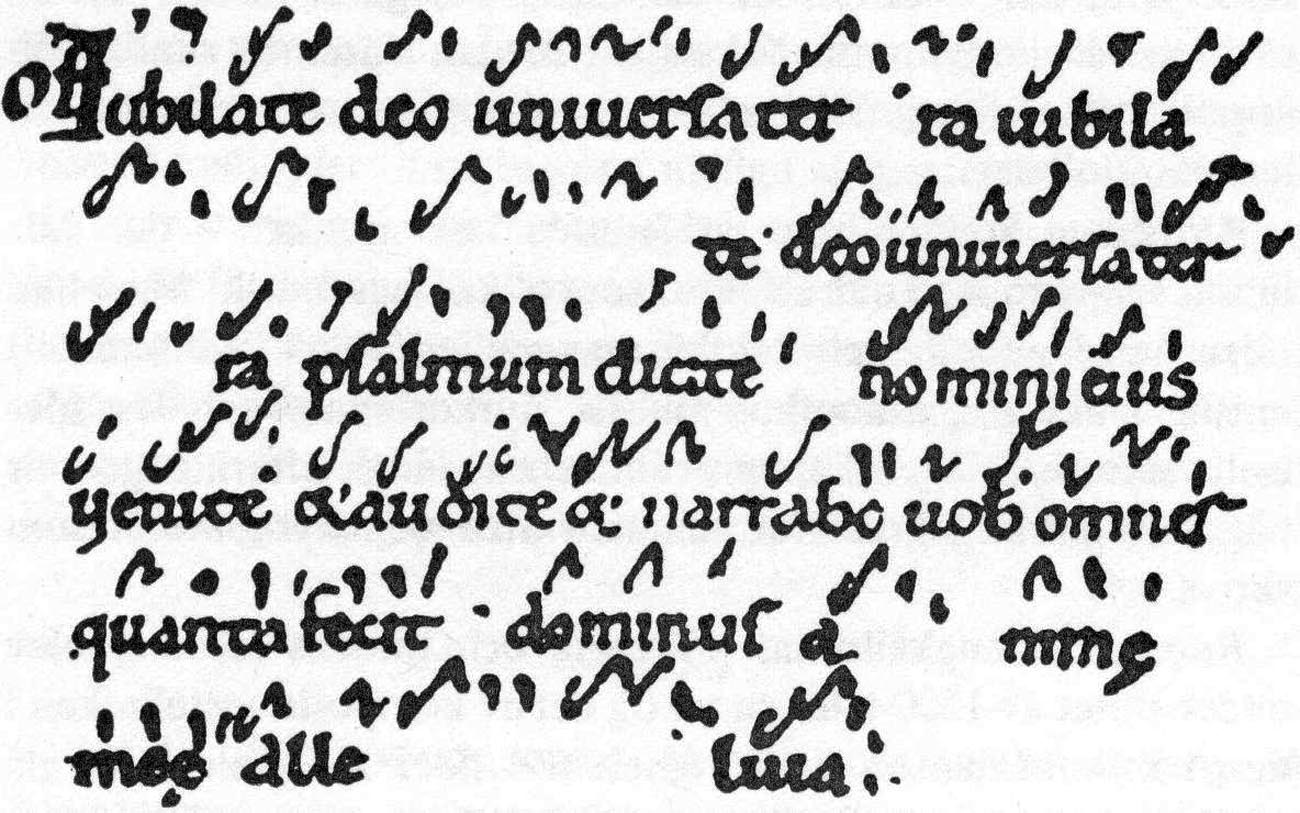 of Iubilate deo universa ter ra iubila
te deo universa ter
ra psalmum dicite nomini eius
venite & audite & narrabo vob omnes
quanta fecit dominus a nime
mee alle luia